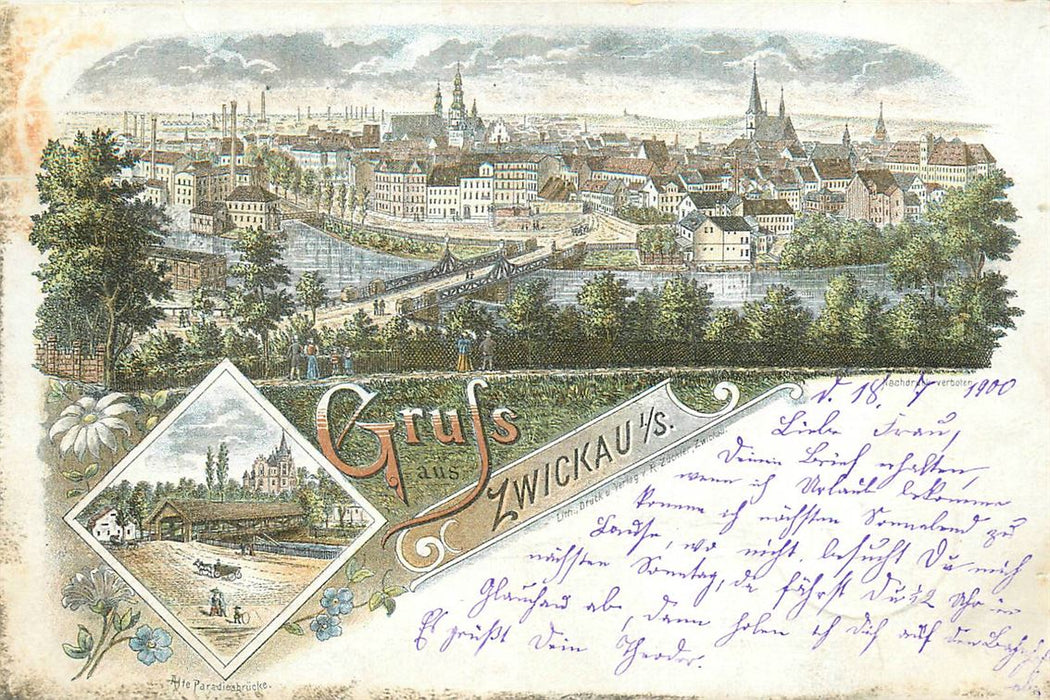 Nachdruck verboten
Gruss
aus
ZWICKAU i/S.
Lith., Druck u. Verlag v. R. Zückler, Zwickau.
Alte Paradiesbrücke.
d. 18. 7 1900
Liebe Frau,
Deinen Brief erhalten,
wenn ich Urlaub bekomme
komme ich nächsten Sonnabend zu
Hause, wo nicht, besucht Du mich
nächsten Sonntag, da fährst Du 12 Uhr in
Glauchau ab, dann holen ich Dich auf dem Bahnhof
ab.
Es grüßt Dein Theodor.